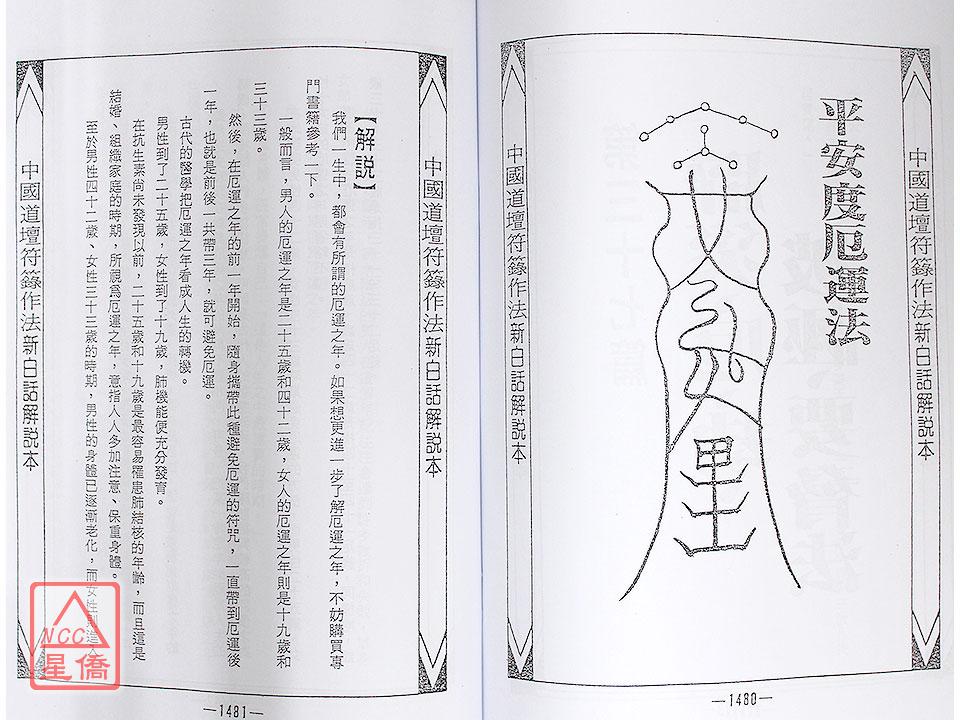 中國道壇符籙作法新白話解説本
平安度厄運法
中國道壇符籙作法新白話解説本
—1480—
中國道壇符籙作法新白話解説本
【解説】
我們一生中，都會有所謂的厄運之年。如果想更進一步了解厄運之年，不妨購買專
門書籍參考一下。
一般而言，男人的厄運之年是二十五歲和四十二歲，女人的厄運之年則是十九歲和
三十三歲。
然後，在厄運之年的前一年開始，隨身攜帶此種避免厄運的符咒，一直帶到厄運後
一年，也就是前後一共帶三年，就可避免厄運。
古代的醫學把厄運之年看成人生的轉機。
男性到了二十五歲，女性到了十九歲，肺機能便充分發育。
在抗生素尚未發現以前，二十五歲和十九歲是最容易罹患肺結核的年齡，而且這是
結婚、組織家庭的時期，所視爲厄運之年，意指人人多加注意、保重身體。
至於男性四十二歲、女性三十三歲的時期，男性的身體已逐漸老化，而女性則進入
中國道壇符籙作法新白話解説本
—1481—
NCC
星僑